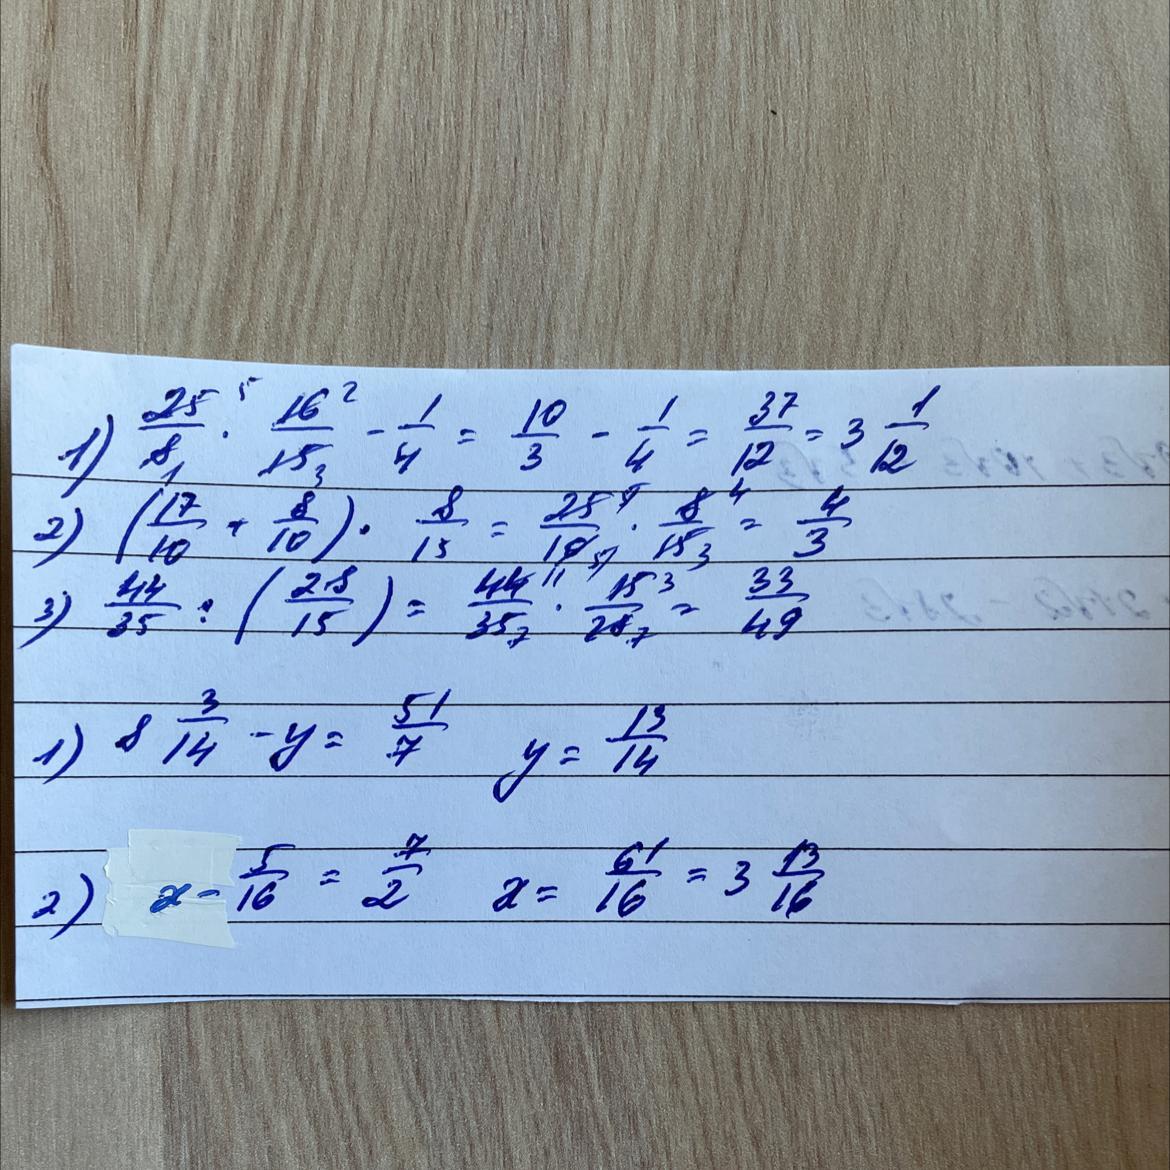 1) 25/8 · 16/15 - 1/4 = 10/3 - 1/4 = 37/12 = 3 1/12
2) (17/10 + 8/10) · 8/15 = 25/10 · 8/15 = 4/3
3) 44/35 : (28/15) = 44/35 · 15/28 = 33/49
1) 8 3/14 - y = 51/7 y = 13/14
2) x - 5/16 = 7/2 x = 61/16 = 3 13/16